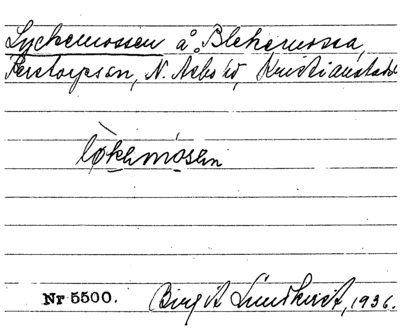 Lyckemossen å Blekemossa,
Perstorpsn, N. Åsbo hd, Kristianstads
lökemósen
Nr 5500. Birgit Lundkvist, 1936.